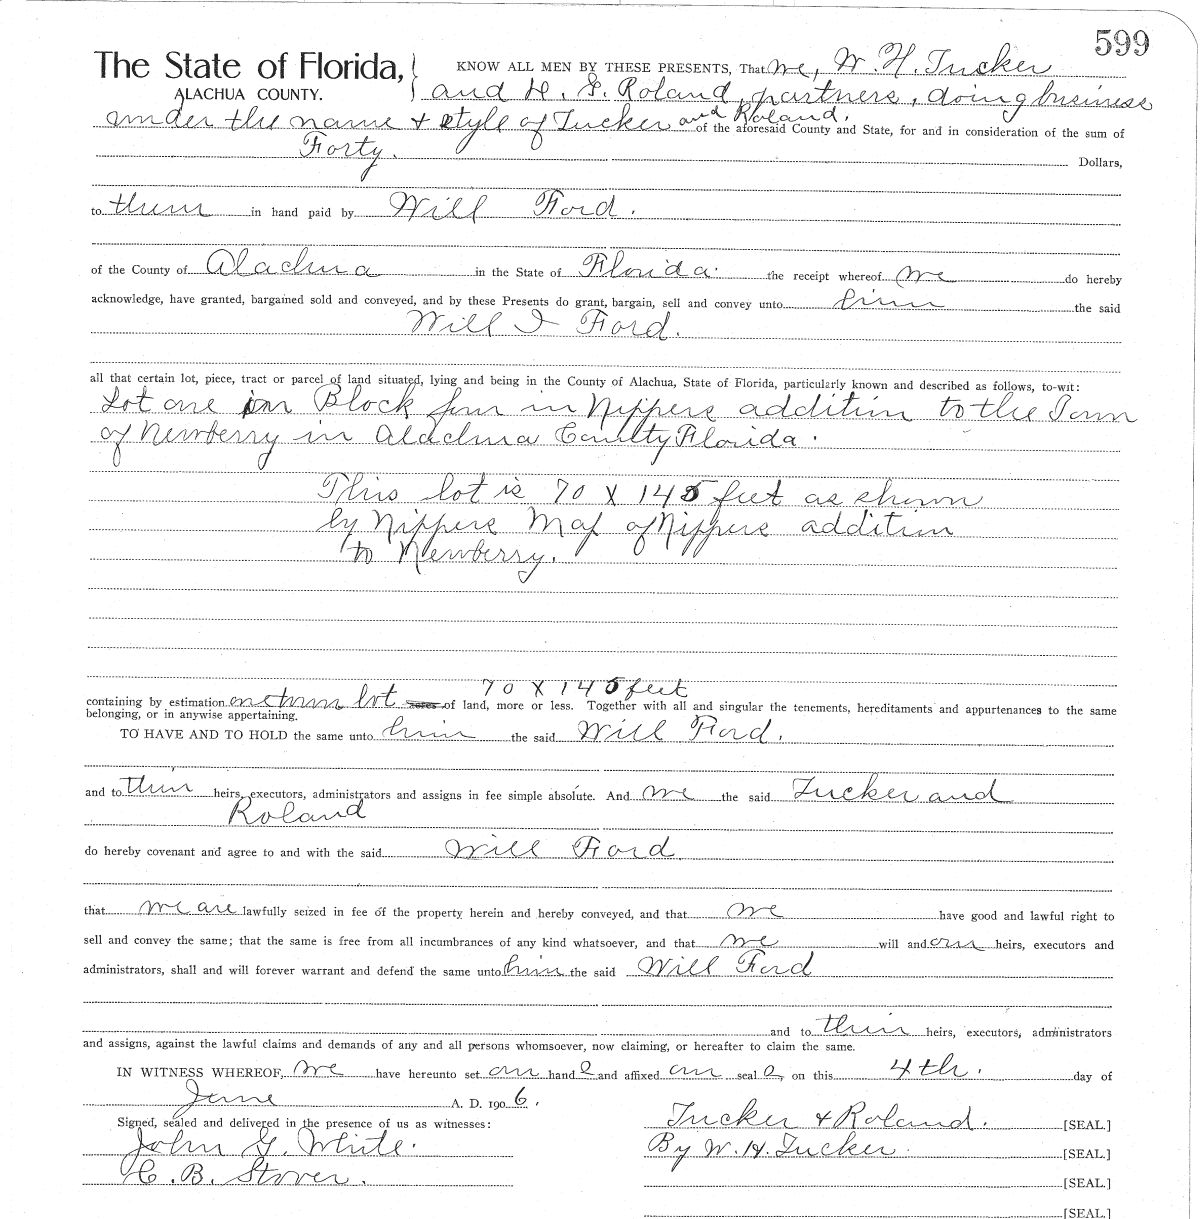 599
The State of Florida, KNOW ALL MEN BY THESE PRESENTS, That we, W. H. Tucker
ALACHUA COUNTY. and D. G. Roland, partners, doing business
under the name + style of Tucker and Roland. of the aforesaid County and State, for and in consideration of the sum of
Forty. Dollars,
to them in hand paid by Will Ford.
of the County of Alachua in the State of Florida. the receipt whereof we do hereby
acknowledge, have granted, bargained sold and conveyed, and by these Presents do grant, bargain, sell and convey unto him the said
Will I Ford.
all that certain lot, piece, tract or parcel of land situated, lying and being in the County of Alachua, State of Florida, particularly known and described as follows, to-wit:
Lot one in Block four in Nippers addition to the Town
of Newberry in Alachua County Florida.
This lot is 70 X 145 feet as shown
by Nippers Map of Nippers addition
to Newberry.
70 X 145 feet
containing by estimation one town lot acres of land, more or less. Together with all and singular the tenements, hereditaments and appurtenances to the same
belonging, or in anywise appertaining.
TO HAVE AND TO HOLD the same unto him the said Will Ford.
and to their heirs, executors, administrators and assigns in fee simple absolute. And we the said Tucker and
Roland
do hereby covenant and agree to and with the said Will Ford
that we are lawfully seized in fee of the property herein and hereby conveyed, and that we have good and lawful right to
sell and convey the same; that the same is free from all incumbrances of any kind whatsoever, and that we will and our heirs, executors and
administrators, shall and will forever warrant and defend the same unto him the said Will Ford
and to their heirs, executors, administrators
and assigns, against the lawful claims and demands of any and all persons whomsoever, now claiming, or hereafter to claim the same.
IN WITNESS WHEREOF, we have hereunto set our hands and affixed our seals, on this 4th. day of
June A. D. 1906.
Signed, sealed and delivered in the presence of us as witnesses: Tucker + Roland. [SEAL.]
John G. White. By W. H. Tucker. [SEAL.]
C. B. Stover. [SEAL.]
[SEAL.]